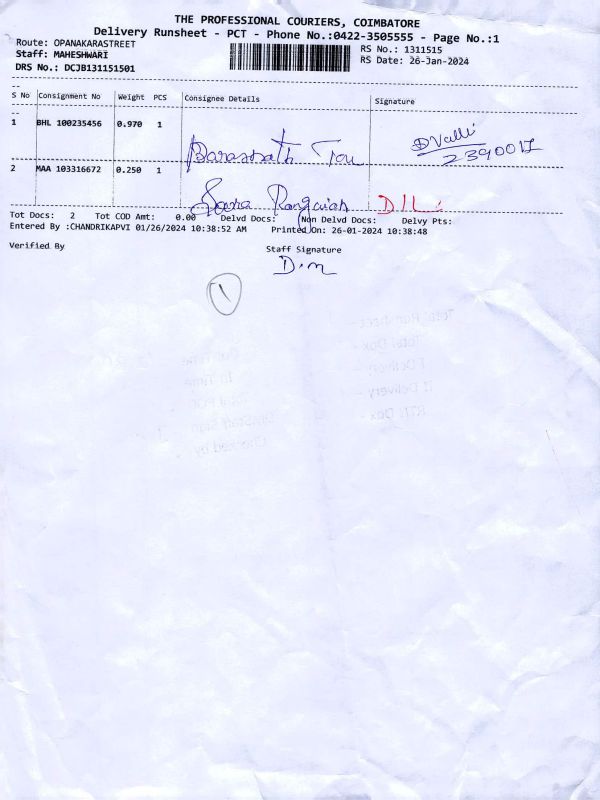 THE PROFESSIONAL COURIERS, COIMBATORE
Delivery Runsheet - PCT - Phone No.:0422-3505555 - Page No.:1
Route: OPANAKARASTREET
RS No.: 1311515
Staff: MAHESHWARI
RS Date: 26-Jan-2024
DRS No.: DCJB131151501
S No Consignment No Weight PCS Consignee Details Signature
1 BHL 100235456 0.970 1
DValli
2 MAA 103316672 0.250 1
Tot Docs: 2 Tot COD Amt: 0.00 Delvd Docs: Non Delvd Docs: Delvy Pts:
Entered By :CHANDRIKAPVI 01/26/2024 10:38:52 AM Printed On: 26-01-2024 10:38:48
Verified By Staff Signature
D.m
1